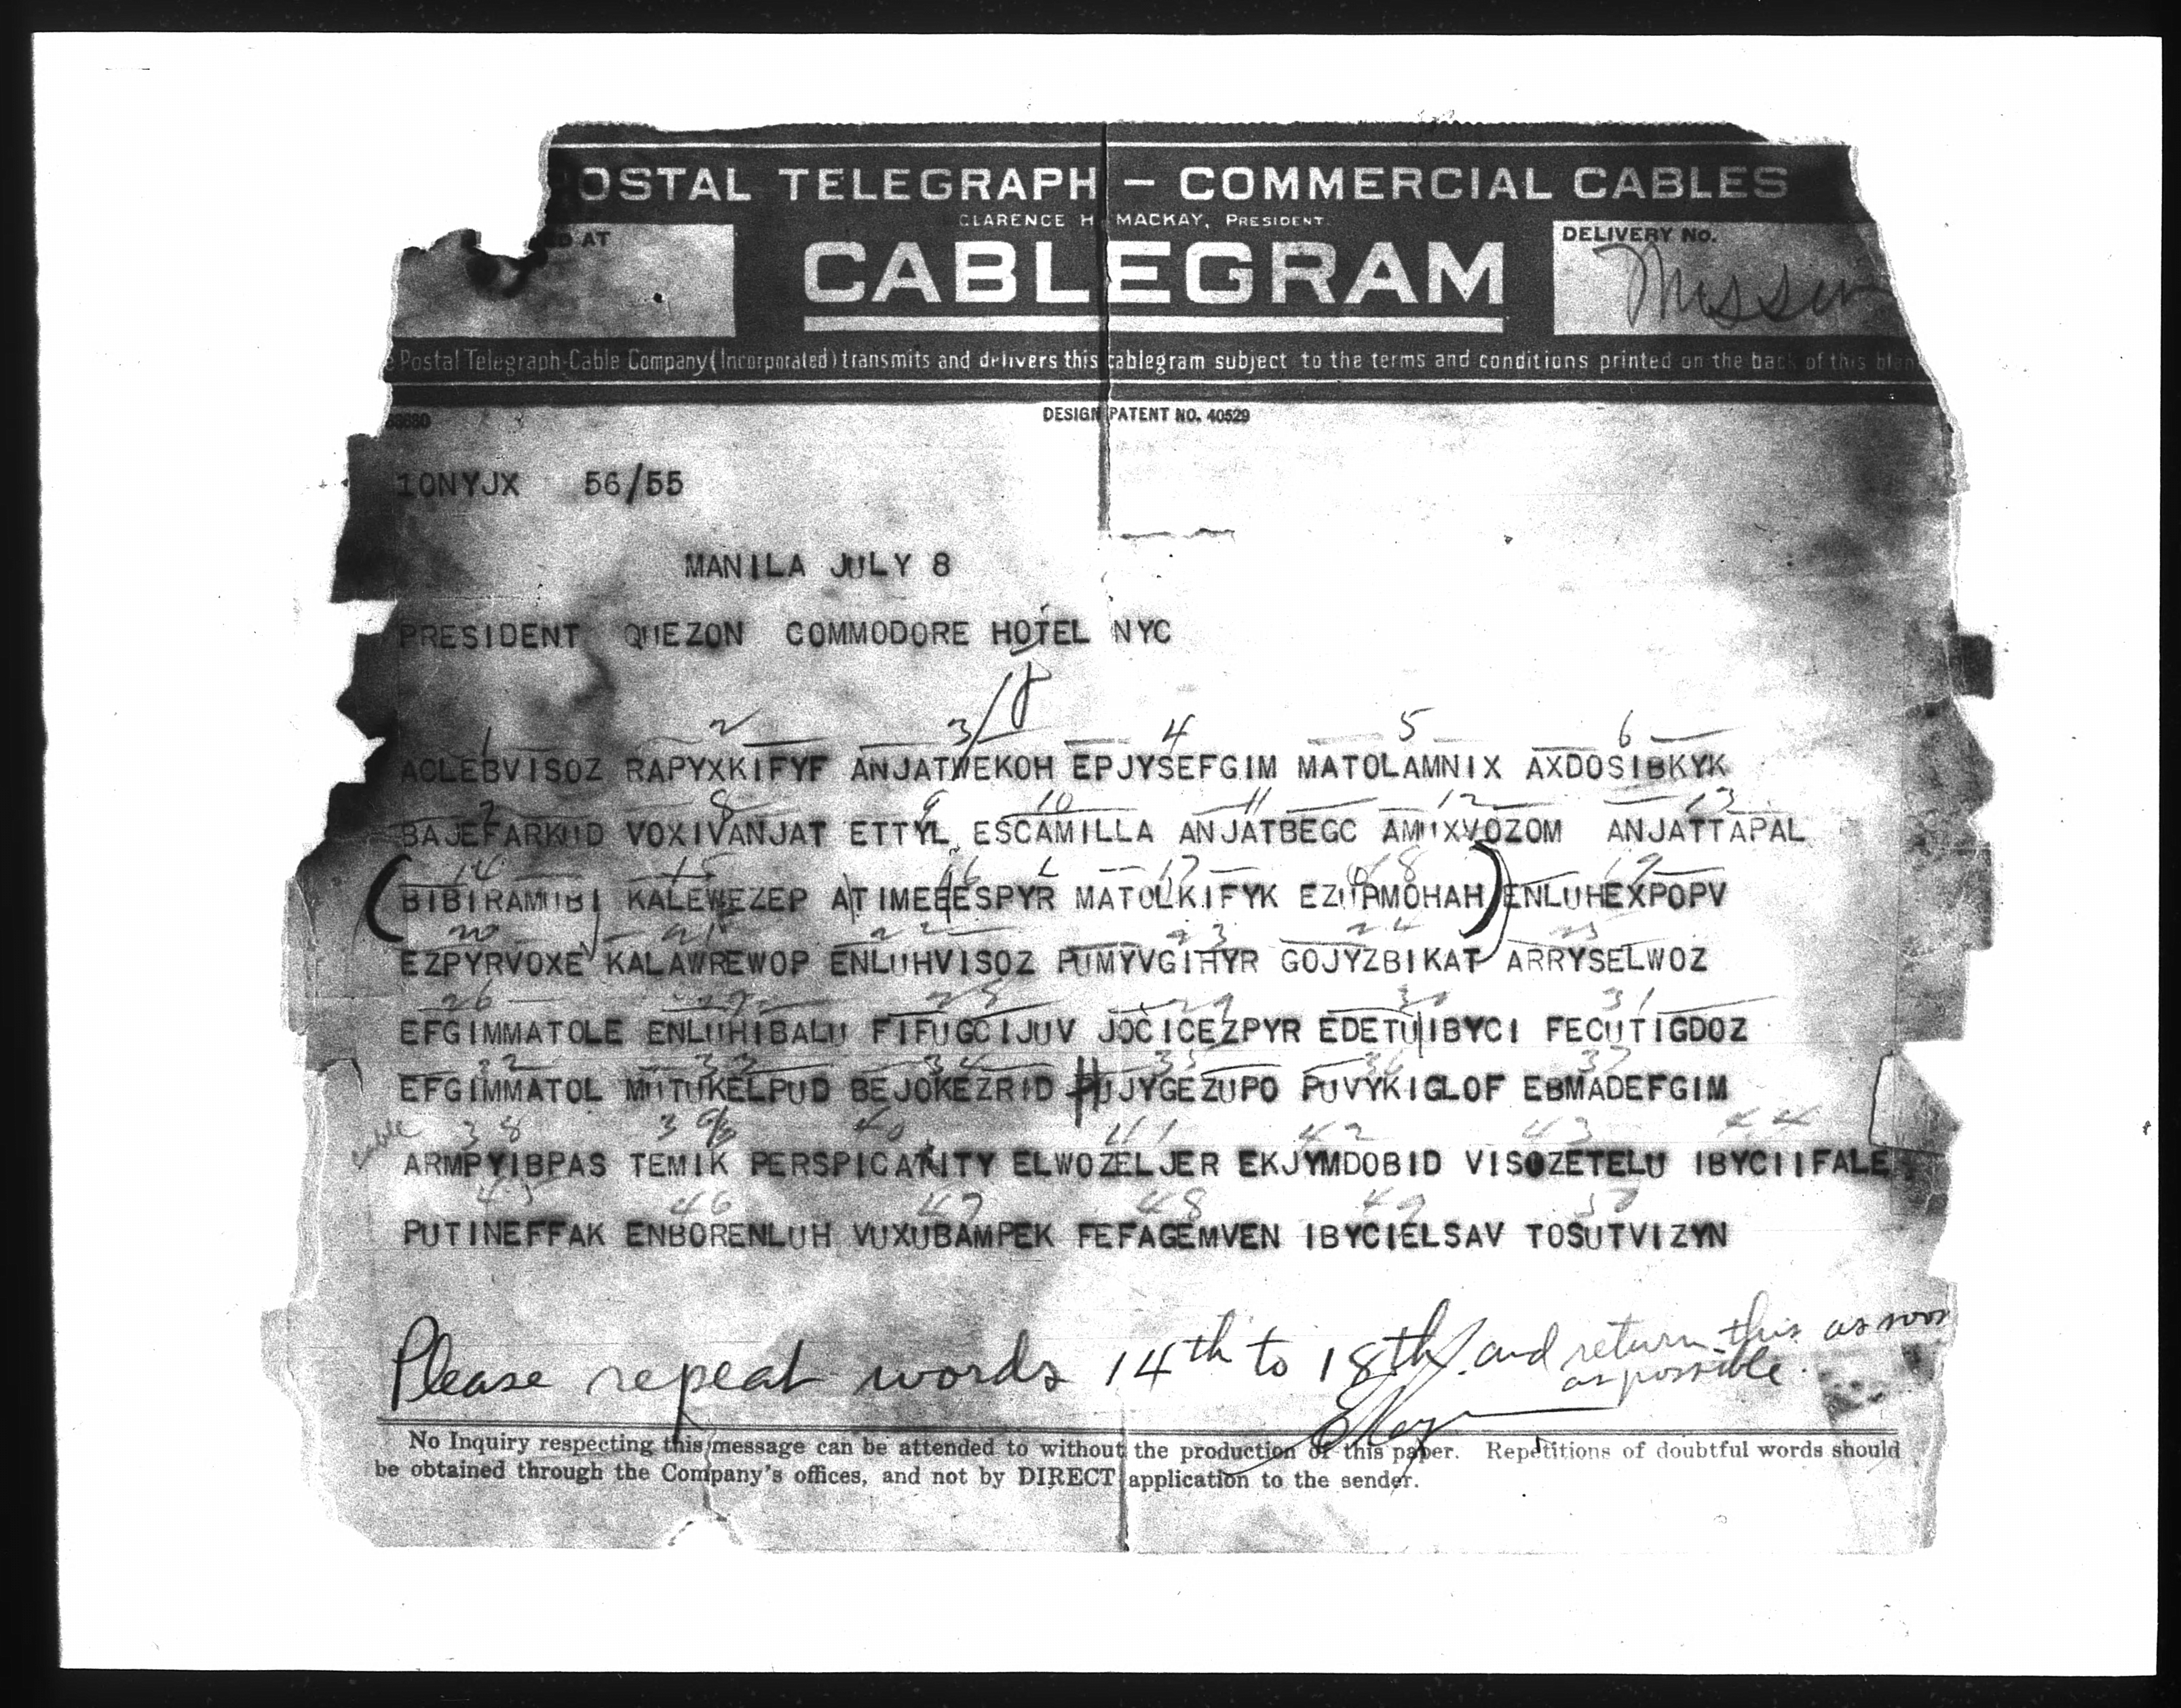 OSTAL TELEGRAPH — COMMERCIAL CABLES
CLARENCE H. MACKAY, PRESIDENT.
D AT
CABLEGRAM
DELIVERY No.
Postal Telegraph-Cable Company (Incorporated) transmits and delivers this cablegram subject to the terms and conditions printed on the back of this blan
DESIGN PATENT NO. 40529
10NYJX 56/55
MANILA JULY 8
PRESIDENT QUEZON COMMODORE HOTEL NYC
18
1 2 3 4 5 6
ACLEBVISOZ RAPYXKIFYF ANJATWEKOH EPJYSEFGIM MATOLAMNIX AXDOSIBKYK
7 8 9 10 11 12 13
BAJEFARKUD VOXIVANJAT ETTYL ESCAMILLA ANJATBEGC AMUXVOZOM ANJATTAPAL
14 15 16 17 18 19
(BIBIRAMUBI KALEWEZEP ATIMEEESPYR MATOLKIFYK EZUPMOHAH) ENLUHEXPOPV
20 21 22 23 24 25
EZPYRVOXE KALAWREWOP ENLUHVISOZ PUMYVGIHYR GOJYZBIKAT ARRYSELWOZ
26 27 28 29 30 31
EFGIMMATOLE ENLUHIBALU FIFUGCIJUV JOCICEZPYR EDETUIBYCI FECUTIGDOZ
32 33 34 35 36 37
EFGIMMATOL MUTUKELPUD BEJOKEZRID PUJYGEZUPO PUVYKIGLOF EBMADEFGIM
38 39 40 41 42 43 44
ARMPYIBPAS TEMIK PERSPICAKITY ELWOZELJER EKJYMDOBID VISOZETELU IBYCIIFALE
45 46 47 48 49 50
PUTINEFFAK ENBORENLUH VUXUBAMPEK FEFAGEMVEN IBYCIELSAV TOSUTVIZYN
Please repeat words 14th to 18th and return this as soon
as possible.
No Inquiry respecting this message can be attended to without the production of this paper. Repetitions of doubtful words should
be obtained through the Company's offices, and not by DIRECT application to the sender.